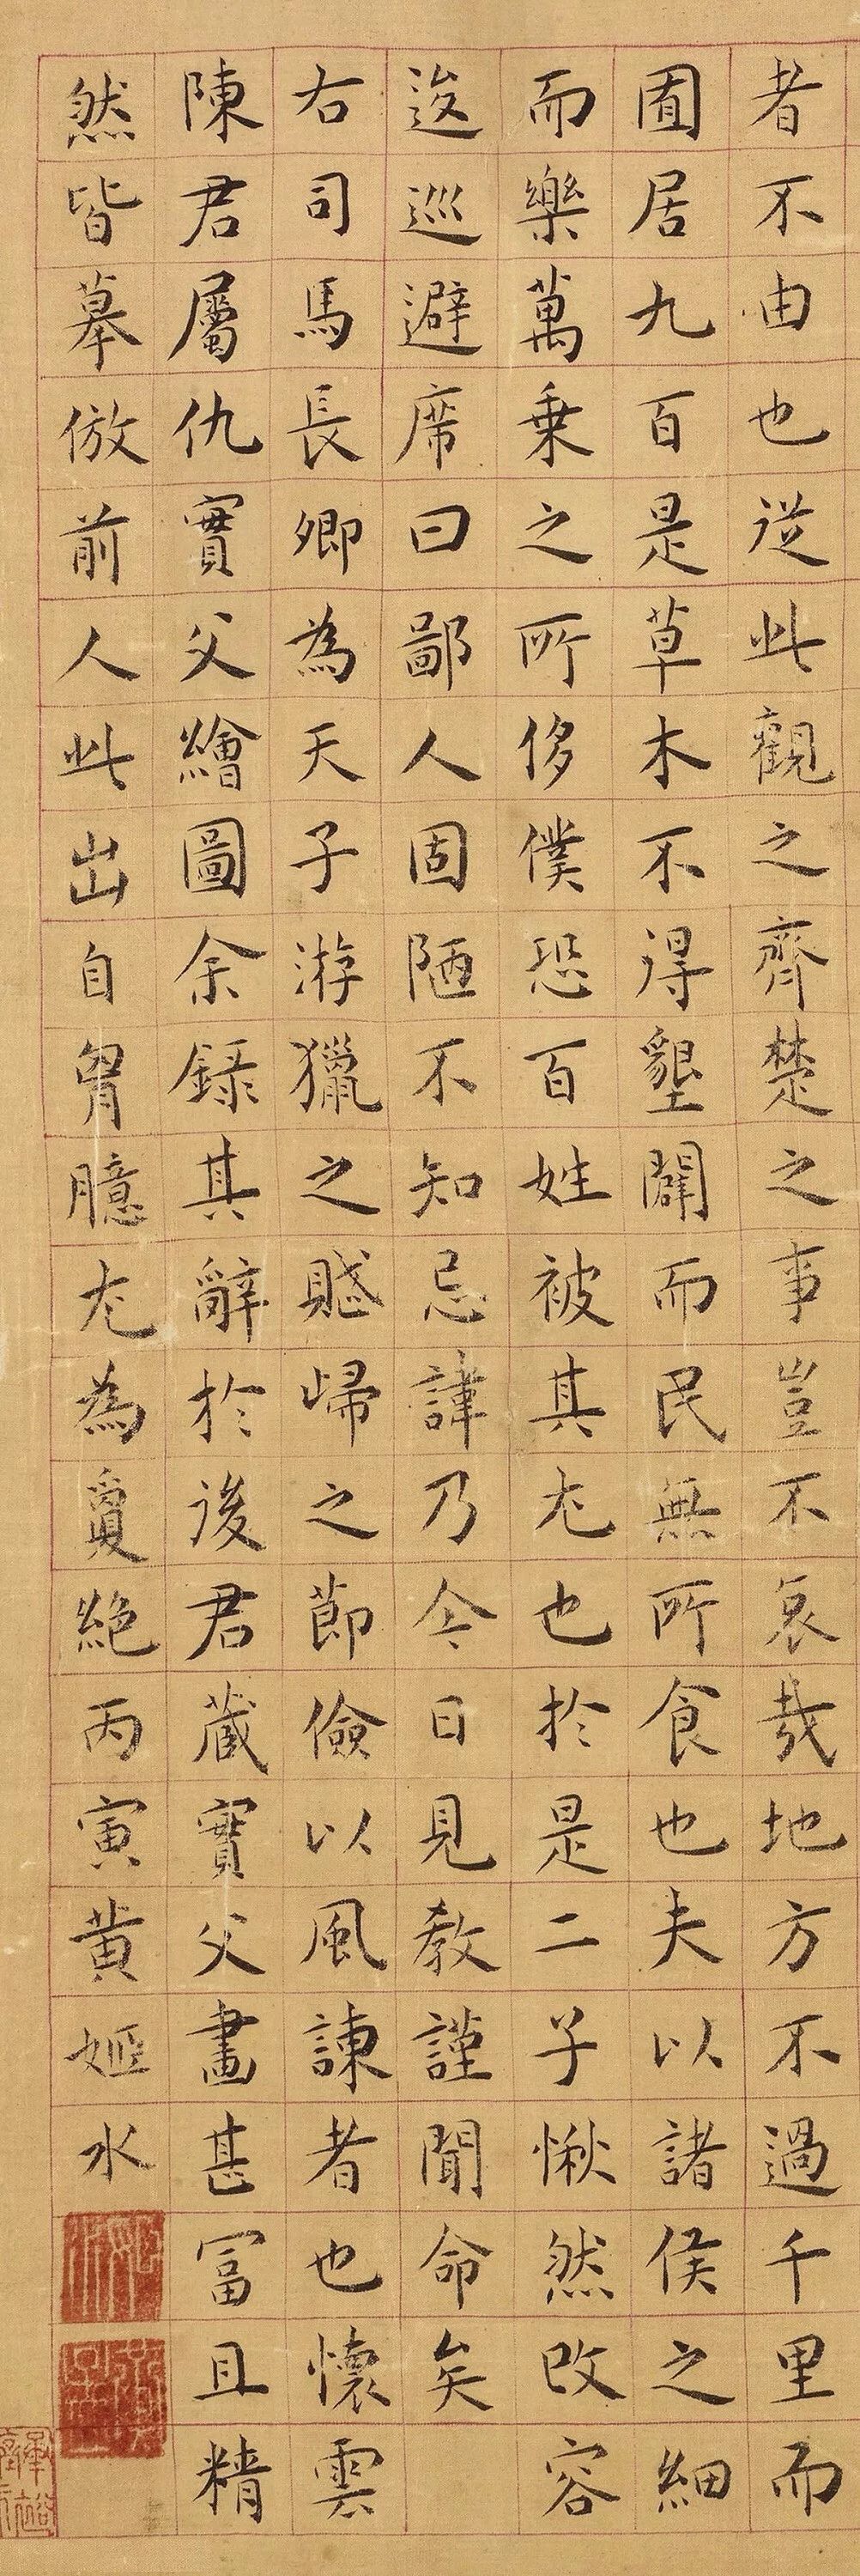 者不由也從此觀之齊楚之事豈不哀哉地方不過千里而
囿居九百是草木不得墾闢而民無所食也夫以諸侯之細
而樂萬乗之所侈僕恐百姓被其尤也於是二子愀然改容
逡巡避席曰鄙人固陋不知忌諱乃今日見教謹聞命矣
右司馬長卿為天子游獵之賦歸之節儉以風諫者也懷雲
陳君屬仇實父繪圖余録其辭於後君蔵實父畫甚富且精
然皆摹倣前人此出自胷臆尤為敻絕丙寅黄姬水